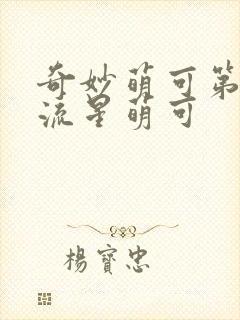 奇妙萌可第
流星萌可
楊寶忠